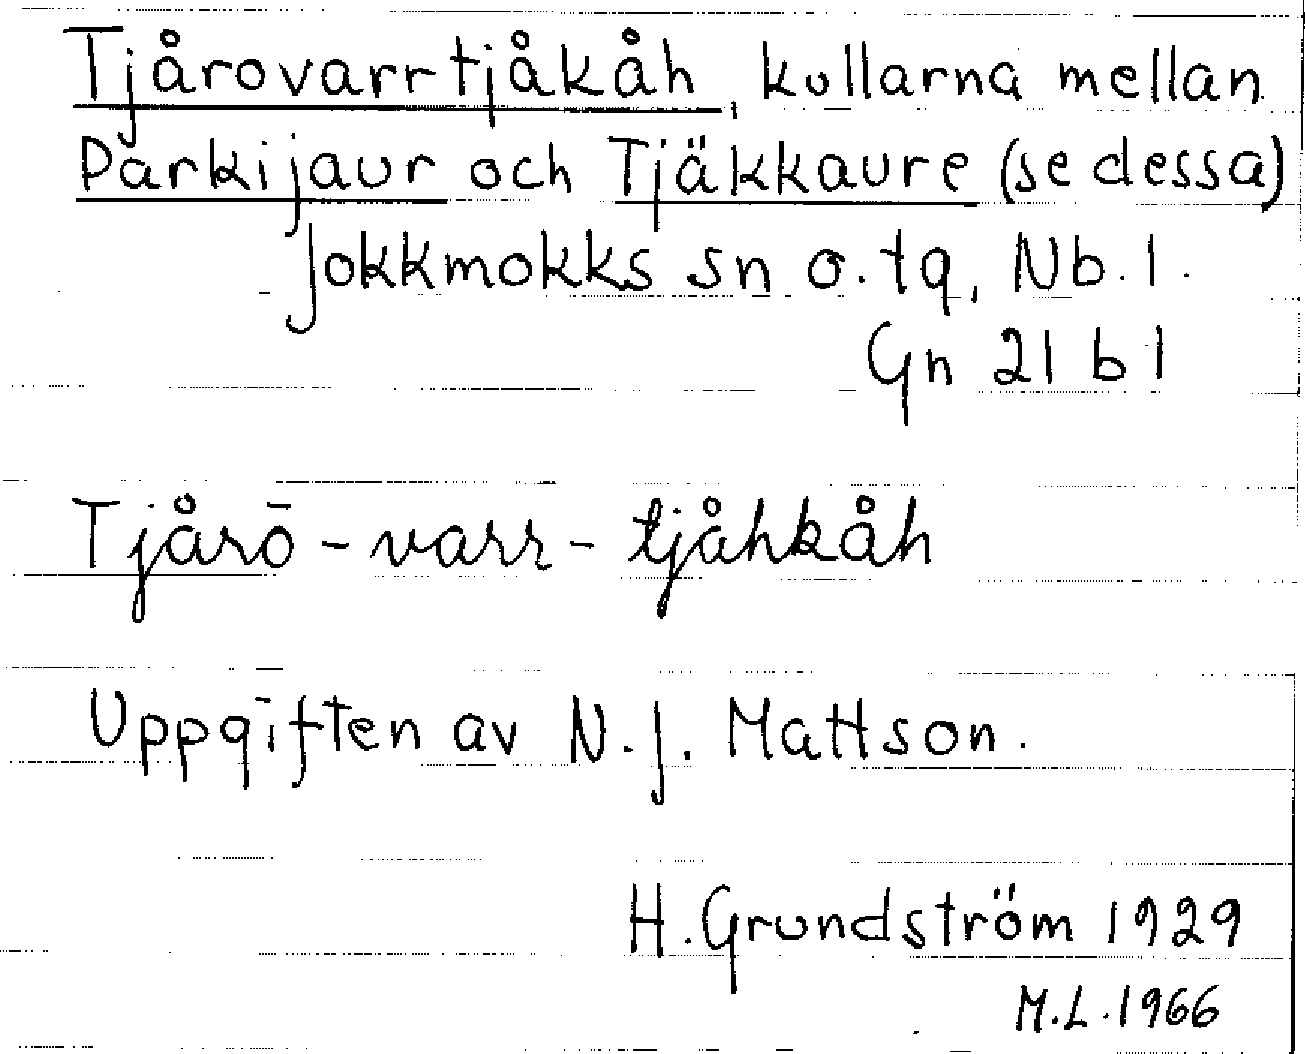 Tjårovarrtjåkåh, kullarna mellan
Parkijaur och Tjäkkaure (se dessa)
Jokkmokks sn o. tg, Nb. l.
Gn 21 b 1
Tjårō-varr-tjåhkåh
Uppgiften av N. J. Mattson.
H. Grundström 1929
M.L. 1966